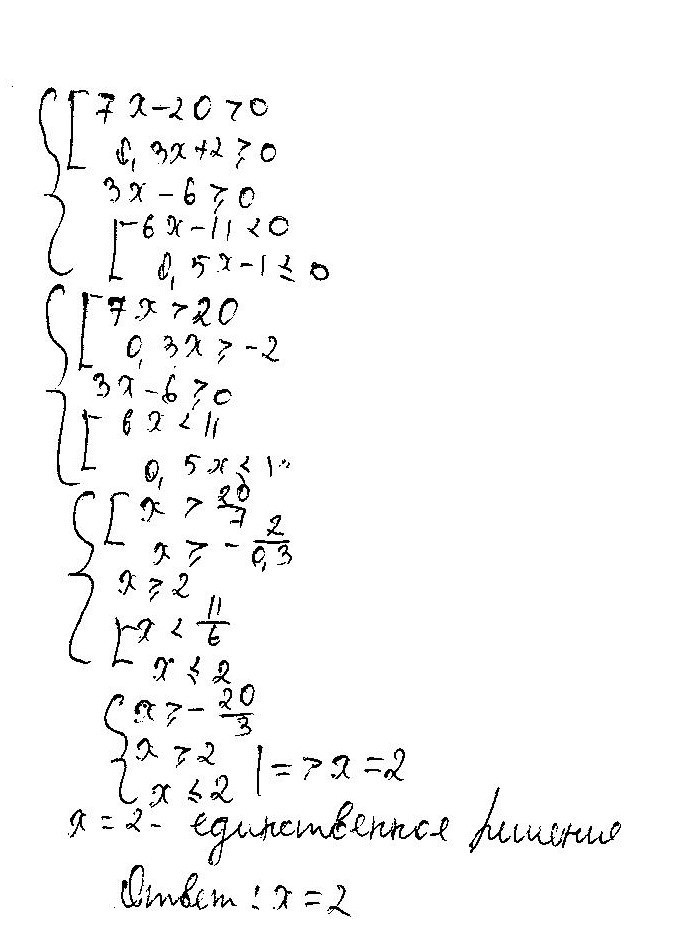 7x-20>0
0,3x+2⩾0
3x-6⩾0
6x-11<0
0,5x-1⩽0
7x>20
0,3x⩾-2
3x-6⩾0
6x<11
0,5x⩽1
x>20/7
x⩾-2/0,3
x⩾2
x<11/6
x⩽2
x⩾-20/3
x⩾2
x⩽2 |=>x=2
x=2- единственное решение
Ответ: x=2